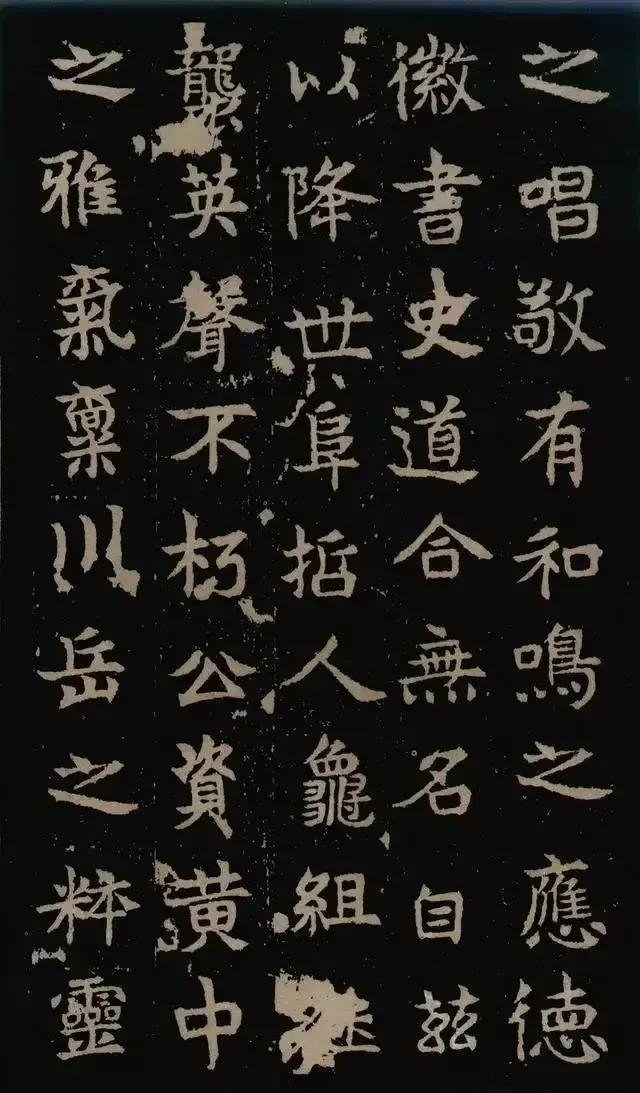 之唱敬有和鳴之應德
徽書史道合無名自玆
以降世阜哲人龜組継
襲英聲不朽公資黄中
之雅氣稟川岳之粋靈